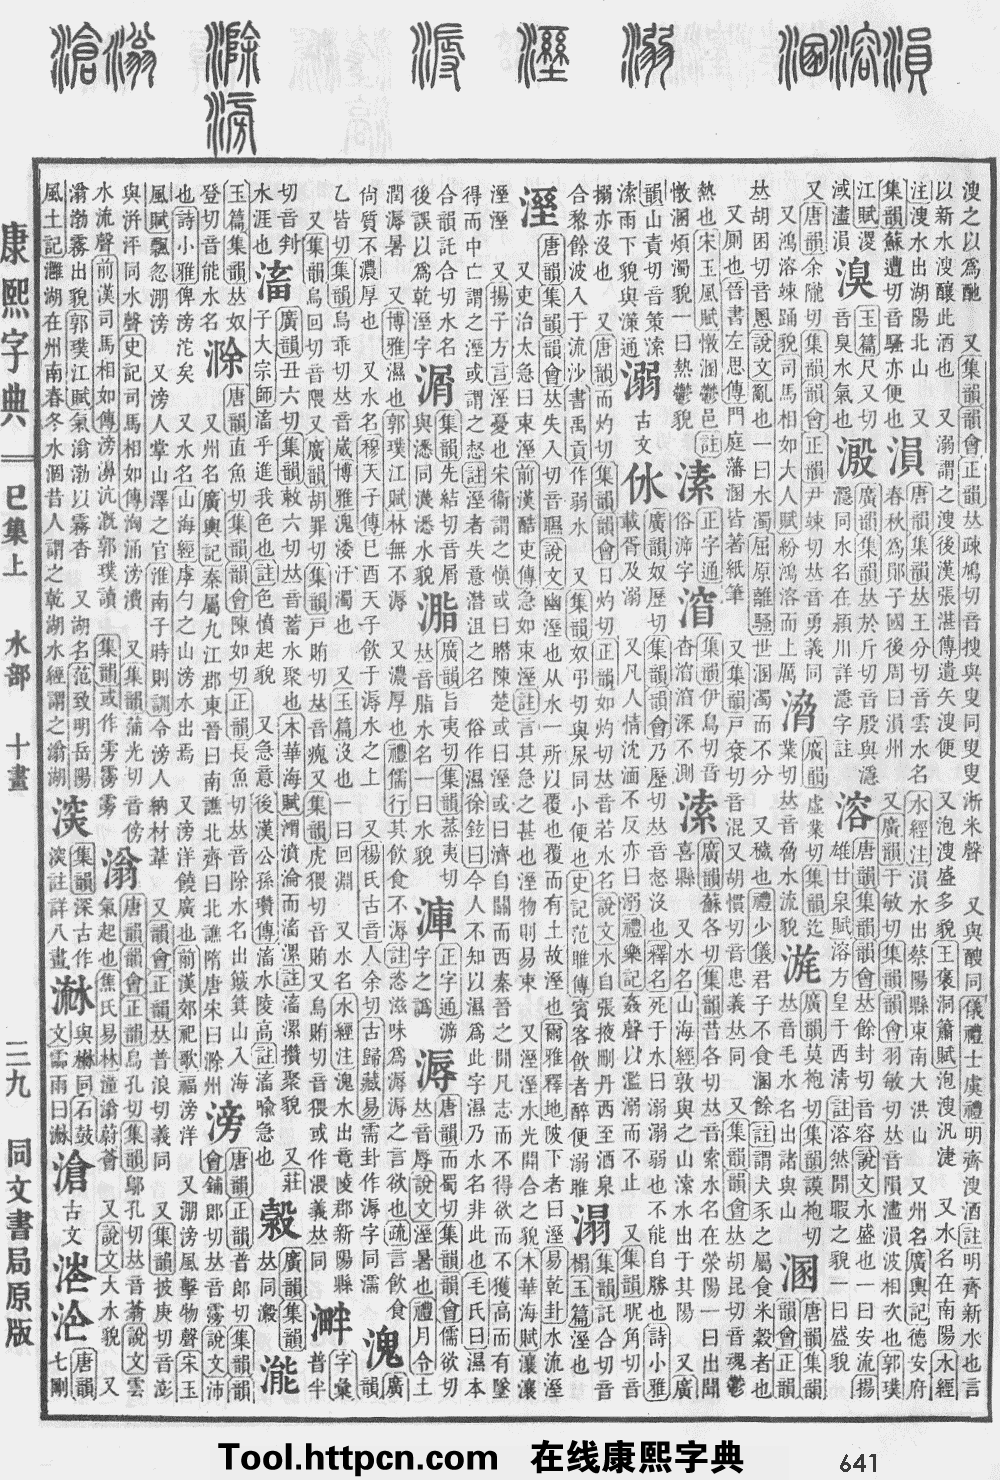 溳溶溷 溺 溼 溽 滁滂 滃滄
溲之以爲酏 又集韻韻會正韻𠀤疎鳩切音搜與叟同叟叟淅米聲 又與醙同儀禮士虞禮明齊溲酒註明齊新水也言
以新水溲釀此酒也 又溺謂之溲後漢張湛傳遺矢溲便 又泡溲盛多貌王襃洞簫賦泡溲汎㨗 又水名在南陽水經
注溲水出湖陽北山 又集韻蘇遭切音騷亦便也
溳 唐韻集韻𠀤王分切音雲水名春秋爲鄖子國後周曰溳州 水經注溳水出蔡陽縣東南大洪山 又州名廣輿記德安府 又廣韻于敏切集韻韻會羽敏切𠀤音隕濜溳波相次也郭璞江賦溭淢濜溳
溴 玉篇尺又切音臭水氣也
溵 廣韻集韻𠀤於斤切音殷與濦濦同水名在潁川詳濦字註
溶 唐韻集韻韻會𠀤餘封切音容說文水盛也一曰安流揚雄甘泉賦溶方皇于西清註溶然閒暇之貌一曰盛貌 又唐韻余隴切集韻韻會正韻尹竦切𠀤音勇義同 又鴻溶竦踊貌司馬相如大人賦紛鴻溶而上厲
廣韻虛業切集韻迄業切𠀤音脅水流貌
廣韻莫袍切集韻謨袍切𠀤音毛水名出諸與山
溷 唐韻集韻韻會正韻𠀤胡困切音慁說文亂也一曰水濁屈原離騷世溷濁而不分 又穢也禮少儀君子不食溷餘註謂犬豕之屬食米穀者也 又厠也晉書左思傳門庭藩溷皆著紙筆 又集韻戸袞切音混又胡慣切音患義𠀤同 又集韻韻會𠀤胡昆切音魂鬱熱也宋玉風賦憞溷鬱邑註憞溷煩濁貌一曰熱鬱貌
溸 正字通俗㴑字
㴐 集韻伊鳥切音杳㴐㴐深不測
溹 廣韻蘇各切集韻昔各切𠀤音索水名在滎陽一曰出聞喜縣 又水名山海經敦與之山溹水出于其陽 又廣韻山責切音策溹溹雨下貌與㵰通
溺 古文㲻 廣韻奴歷切集韻韻會乃歷切𠀤音惄沒也釋名死于水曰溺溺弱也不能自勝也詩小雅載胥及溺 又凡人情沈湎不反亦曰溺禮樂記姦聲以濫溺而不止 又集韻昵角切音搦亦沒也 又唐韻而灼切集韻韻會日灼切正韻如灼切𠀤音若水名說文水自張掖刪丹西至酒泉合黎餘波入于流沙書禹貢作弱水 又集韻奴弔切與尿同小便也史記范睢傳賓客飮者醉便溺睢
溻 集韻託合切音榻玉篇溼也
溼 唐韻集韻韻會𠀤失入切音㬤說文幽溼也从水一所以覆也覆而有土故溼也爾雅釋地陂下者曰溼易乾卦水流溼 又吏治太急曰束溼前漢酷吏傳急如束溼註言其急之甚也溼物則易束 又溼溼水光開合之貌木華海賦瀼瀼溼溼 又揚子方言溼憂也宋衞謂之愼或曰㬤陳楚或曰溼或曰濟自關而西秦晉之閒凡志而不得欲而不獲高而有墜得而中亡謂之溼或謂之惄註溼者失意潛沮之名 俗作濕徐鉉曰今人不知以濕爲此字濕乃水名非此也毛氏曰濕本合韻託合切水名後誤以爲乾溼字
㴮 集韻先結切音屑與悉同㵸悉水貌
㴯 廣韻旨夷切集韻蒸夷切𠀤音脂水名一曰水貌
㴜 正字通滹字之譌
溽 唐韻而蜀切集韻韻會儒欲切𠀤音辱說文溼暑也禮月令土潤溽暑 又博雅濕也郭璞江賦林無不溽 又濃厚也禮儒行其飮食不溽註恣滋味爲溽溽之言欲也疏言飮食尚質不濃厚也 又水名穆天子傳巳酉天子飮于溽水之上 又楊氏古音人余切古歸藏易需卦作溽字同濡
溾 廣韻乙皆切集韻烏乖切𠀤音崴博雅溾涹汙濁也 又玉篇沒也一曰回淵 又水名水經注溾水出竟陵郡新陽縣 又集韻烏回切音隈又廣韻胡罪切集韻戸賄切𠀤音瘣又集韻虎猥切音賄又烏賄切音猥或作渨義𠀤同
溿 字彙普半切音判水涯也
滀 廣韻丑六切集韻敕六切𠀤音蓄水聚也木華海賦㴋濆淪而滀漯註滀漯攢聚貌 又莊子大宗師滀乎進我色也註色憤起貌 又急意後漢公孫瓚傳滀水陵高註滀喩急也
廣韻集韻𠀤同瀔
玉篇集韻𠀤奴登切音能水名
滁 唐韻直魚切集韻韻會陳如切正韻長魚切𠀤音除水名出𥳽箕山入海 又州名廣輿記秦屬九江郡東晉曰南譙北齊曰北譙隋唐宋曰滁州
滂 唐韻正韻普郎切集韻韻會鋪郎切𠀤音霶說文沛也詩小雅俾滂沱矣 又水名山海經虖勺之山滂水出焉 又滂洋饒廣也前漢郊祀歌福滂洋 又淜滂風擊物聲宋玉風賦飄忽淜滂 又滂人掌山澤之官淮南子時則訓令滂人納材葦 又韻會正韻𠀤普浪切義同 又集韻披庚切音澎與洴泙同水聲史記司馬相如傳洶涌滂㵒 又集韻蒲光切音傍水流聲前漢司馬相如傳滂濞沆溉郭璞讀 集韻或作雱霶雾
滃 唐韻韻會正韻烏孔切集韻鄔孔切𠀤音蓊說文雲氣起也焦氏易林潼滃蔚薈 又說文大水貌 又滃渤霧出貌郭璞江賦氣滃渤以霧杳 又湖名范致明岳陽風土記灉湖在州南春冬水涸昔人謂之乾湖水經謂之滃湖
㴸 集韻深古作㴸註詳八畫
𣻗 與㴇同石鼓文霝雨曰𣻗
滄 古文 唐韻七剛
康熙字典 巳集上 水部 十畫 三九 同文書局原版
Tool.httpcn.com 在线康熙字典
641